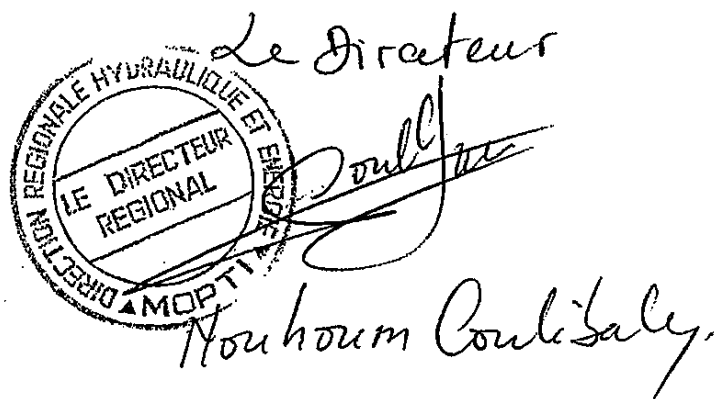 Le Directeur
DIRECTION REGIONALE HYDRAULIQUE ET ENERGIE
LE DIRECTEUR
REGIONAL
▲ MOPTI ▲
Nouhoum Coulibaly.